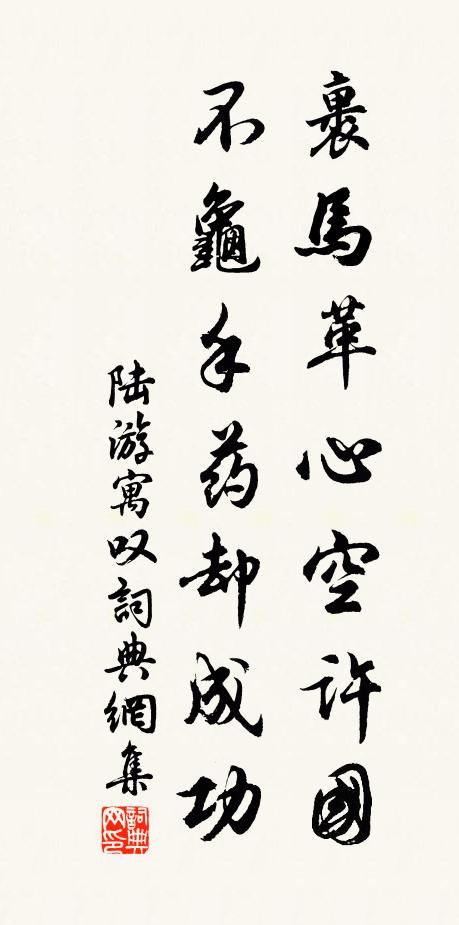 裹馬革心空許國
不龜手药却成功
陆游寓叹詞典網集
詞典网印